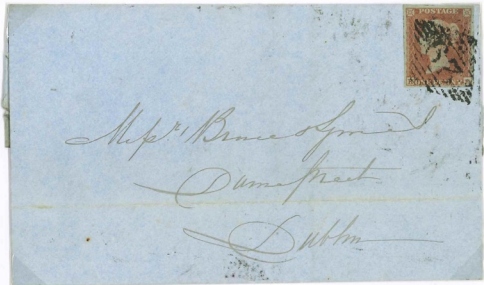 POSTAGE
Messrs Bruce & Symes
Dame Street
Dublin